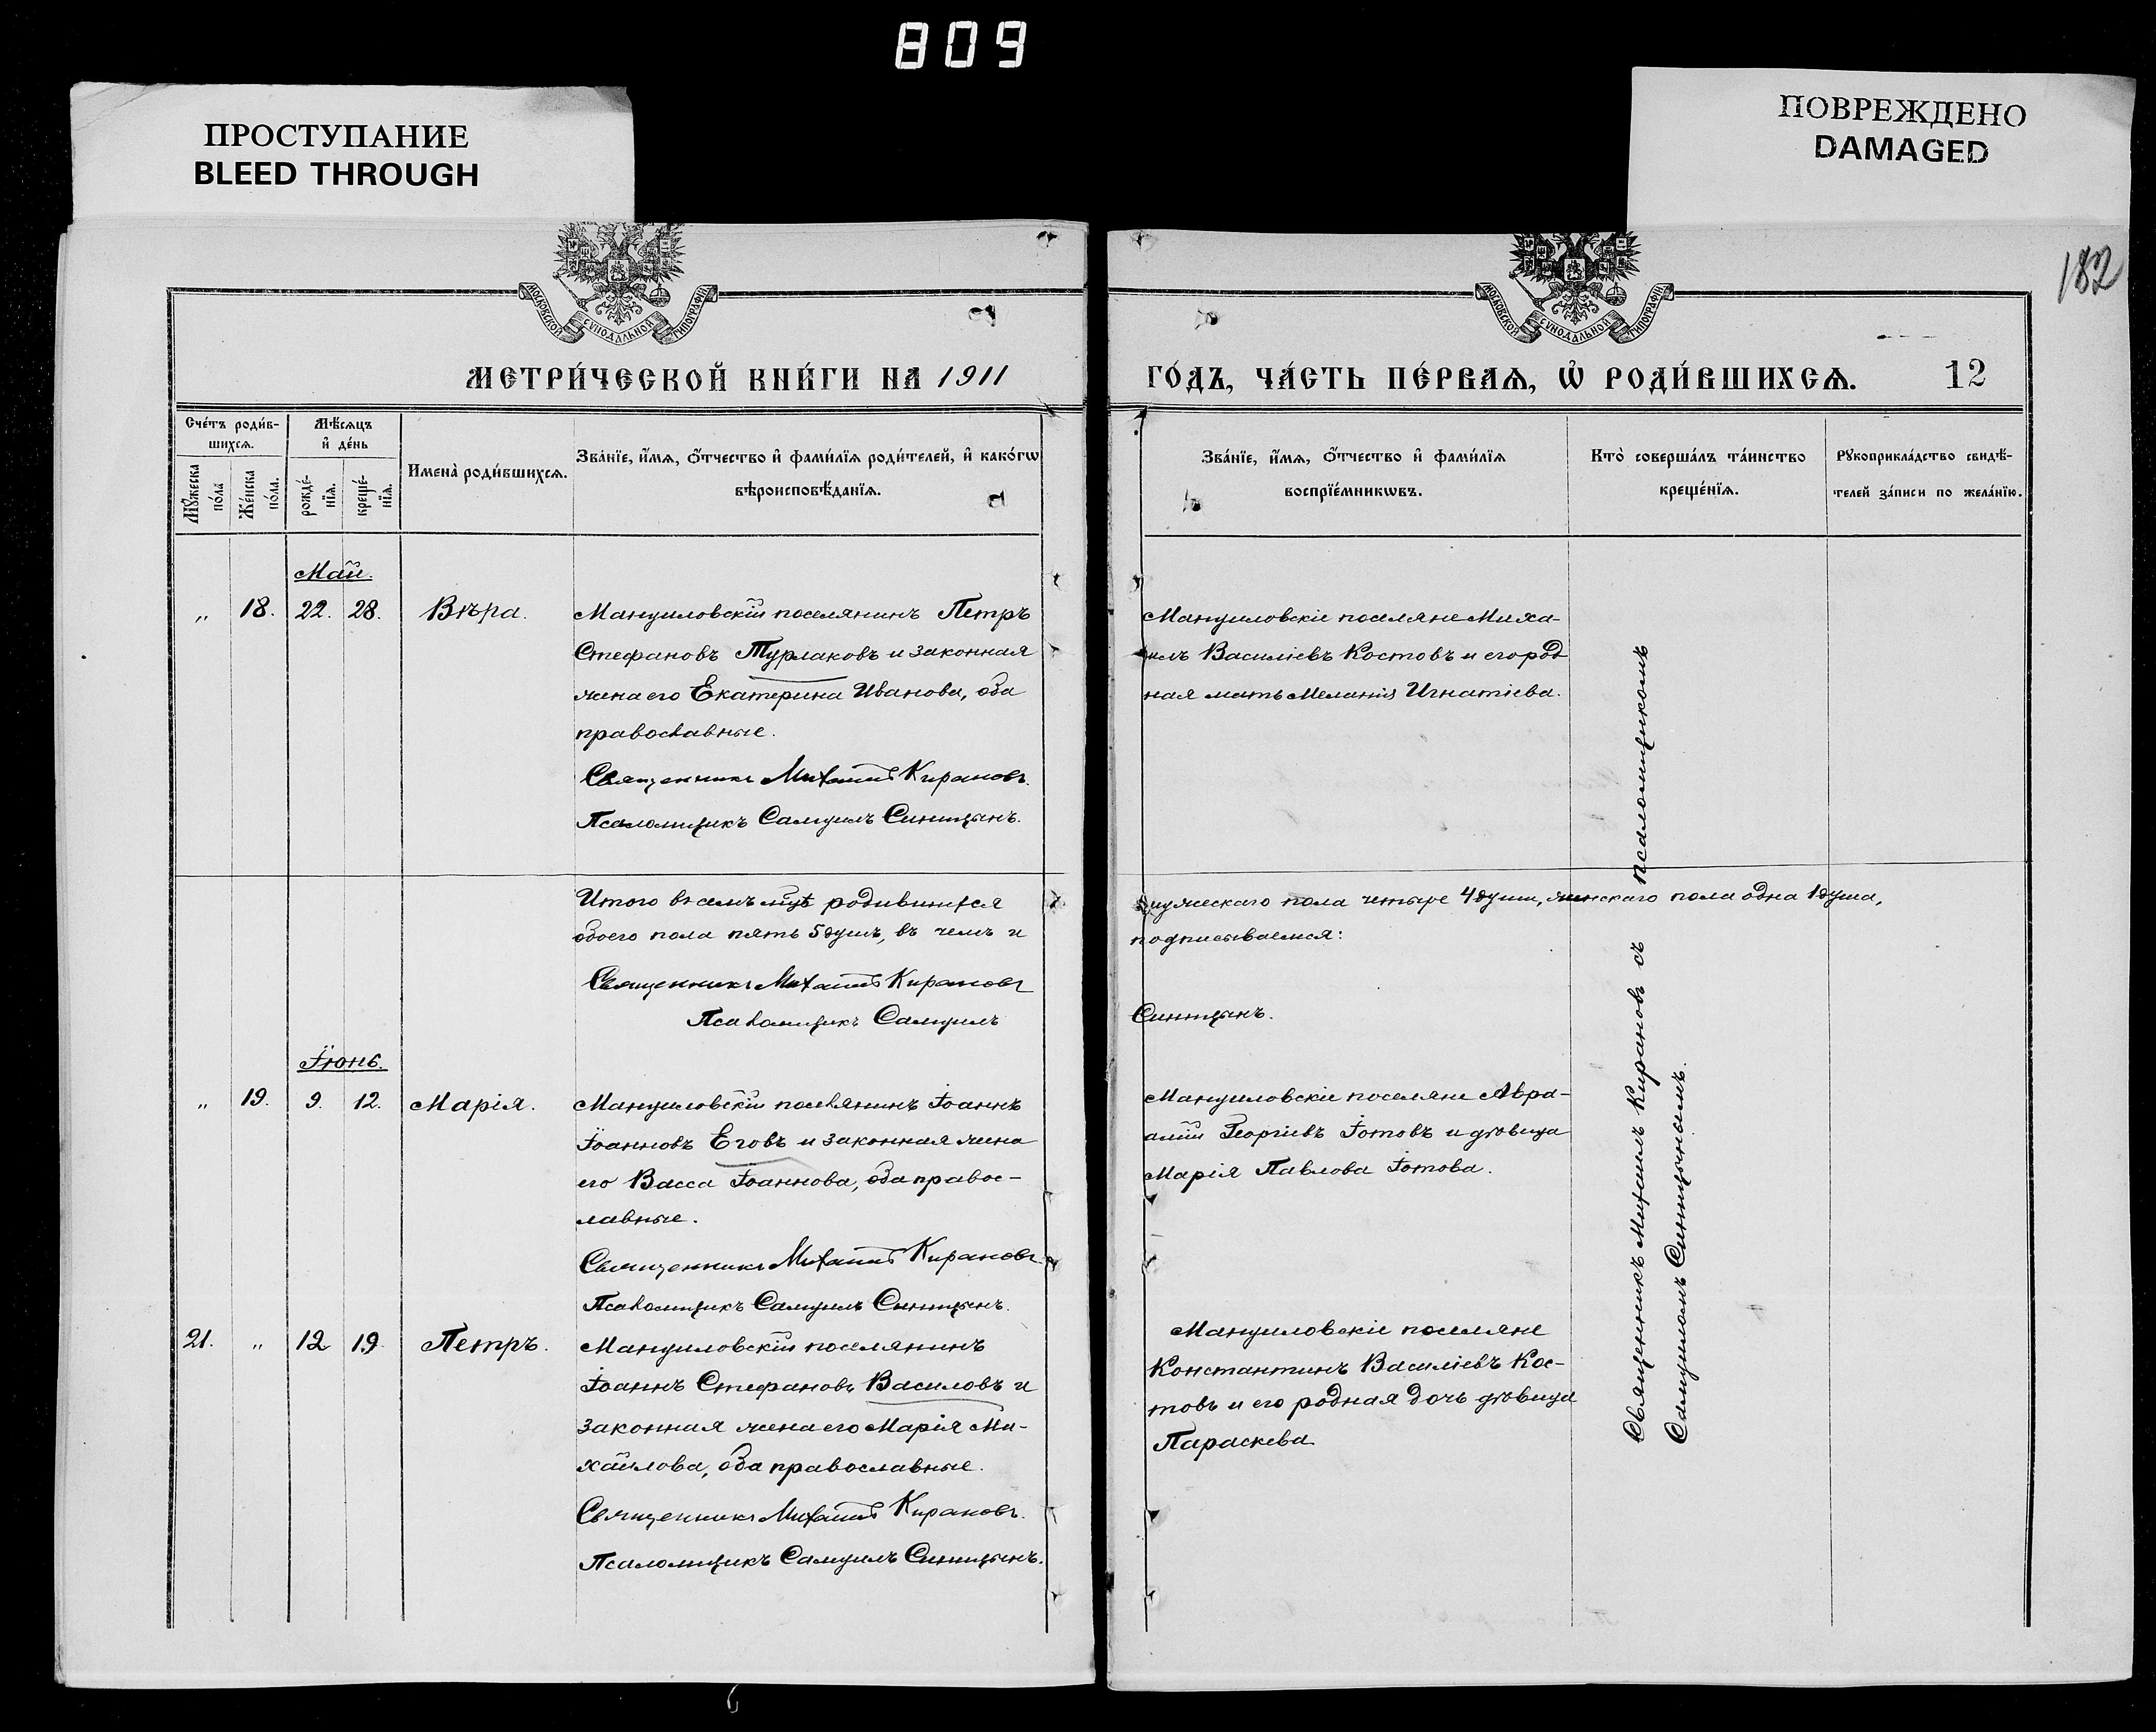 809
ПРОСТУПАНИЕ
BLEED THROUGH
ПОВРЕЖДЕНО
DAMAGED
182
МОСКОВСКОЙ СѴНОДАЛЬНОЙ ТИПОГРАФІИ
МОСКОВСКОЙ СѴНОДАЛЬНОЙ ТИПОГРАФІИ
МЕТРИ́ЧЕСКОЙ КНИ́ГИ НА 1911
ГО́ДЪ, ЧА́СТЬ ПЕ́РВАѦ, Ѡ РОДИ́ВШИХСѦ. 12
Сче́тъ роди́в-
шихсѧ.
Мѣ́сѧцъ
и҆ де́нь
Мꙋ́жеска
по́ла
Же́нска
по́ла.
рожде́-
нїѧ.
креще́-
нїѧ.
Имена̀ роди́вшихсѧ.
Зва́нїе, и҆́мѧ, ѻ҆́тчество и҆ фами́лїѧ роди́телей, и҆ како́гѡ
вѣроисповѣ́данїѧ.
Зва́нїе, и҆́мѧ, ѻ҆́тчество и҆ фами́лїѧ
воспрїе́мникѡвъ.
Кто̀ соверша́лъ та́инство
креще́нїѧ.
Рꙋкоприкла́дство свидѣ́-
телей за́писи по жела́нїю.
Май.
„ 18. 22. 28. Вѣра.
Мануиловскій поселянинъ Петръ
Стефановъ Турлаковъ и законная
жена его Екатерина Иванова, оба
православные.
Священникъ Михаилъ Кирановъ.
Псаломщикъ Самуилъ Синицынъ.
Мануиловскіе поселяне Миха-
илъ Василіевъ Костовъ и его род
ная мать Меланія Игнатіева.
Итого въ семъ мѣс родившихся
обоего пола пять 5 душъ, въ чемъ и
Священникъ Михаилъ Кирановъ
Псаломщикъ Самуилъ
мужескаго пола четыре 4 души, женскаго пола одна 1 душа,
подписываемся:
Синицынъ.
Іюнь.
„ 19. 9. 12. Марія.
Мануиловскій поселянинъ Іоаннъ
Іоанновъ Еговъ и законная жена
его Васса Іоаннова, оба правос-
лавные.
Священникъ Михаилъ Кирановъ
Псаломщикъ Самуилъ Синицынъ.
Мануиловскіе поселяне Авра-
амій Георгіевъ Іотовъ и дѣвица
Марія Павлова Іотова.
21. „ 12 19. Петръ.
Мануиловскій поселянинъ
Іоаннъ Стефановъ Василовъ и
законная жена его Марія Ми-
хайлова, оба православные.
Священникъ Михаилъ Кирановъ.
Псаломщикъ Самуилъ Синицынъ.
Мануиловскіе поселяне
Константинъ Василіевъ Кос-
товъ и его родная дочь дѣвица
Параскева
Священникъ Михаилъ Кирановъ съ псаломщикомъ
Самуиломъ Синицынымъ.